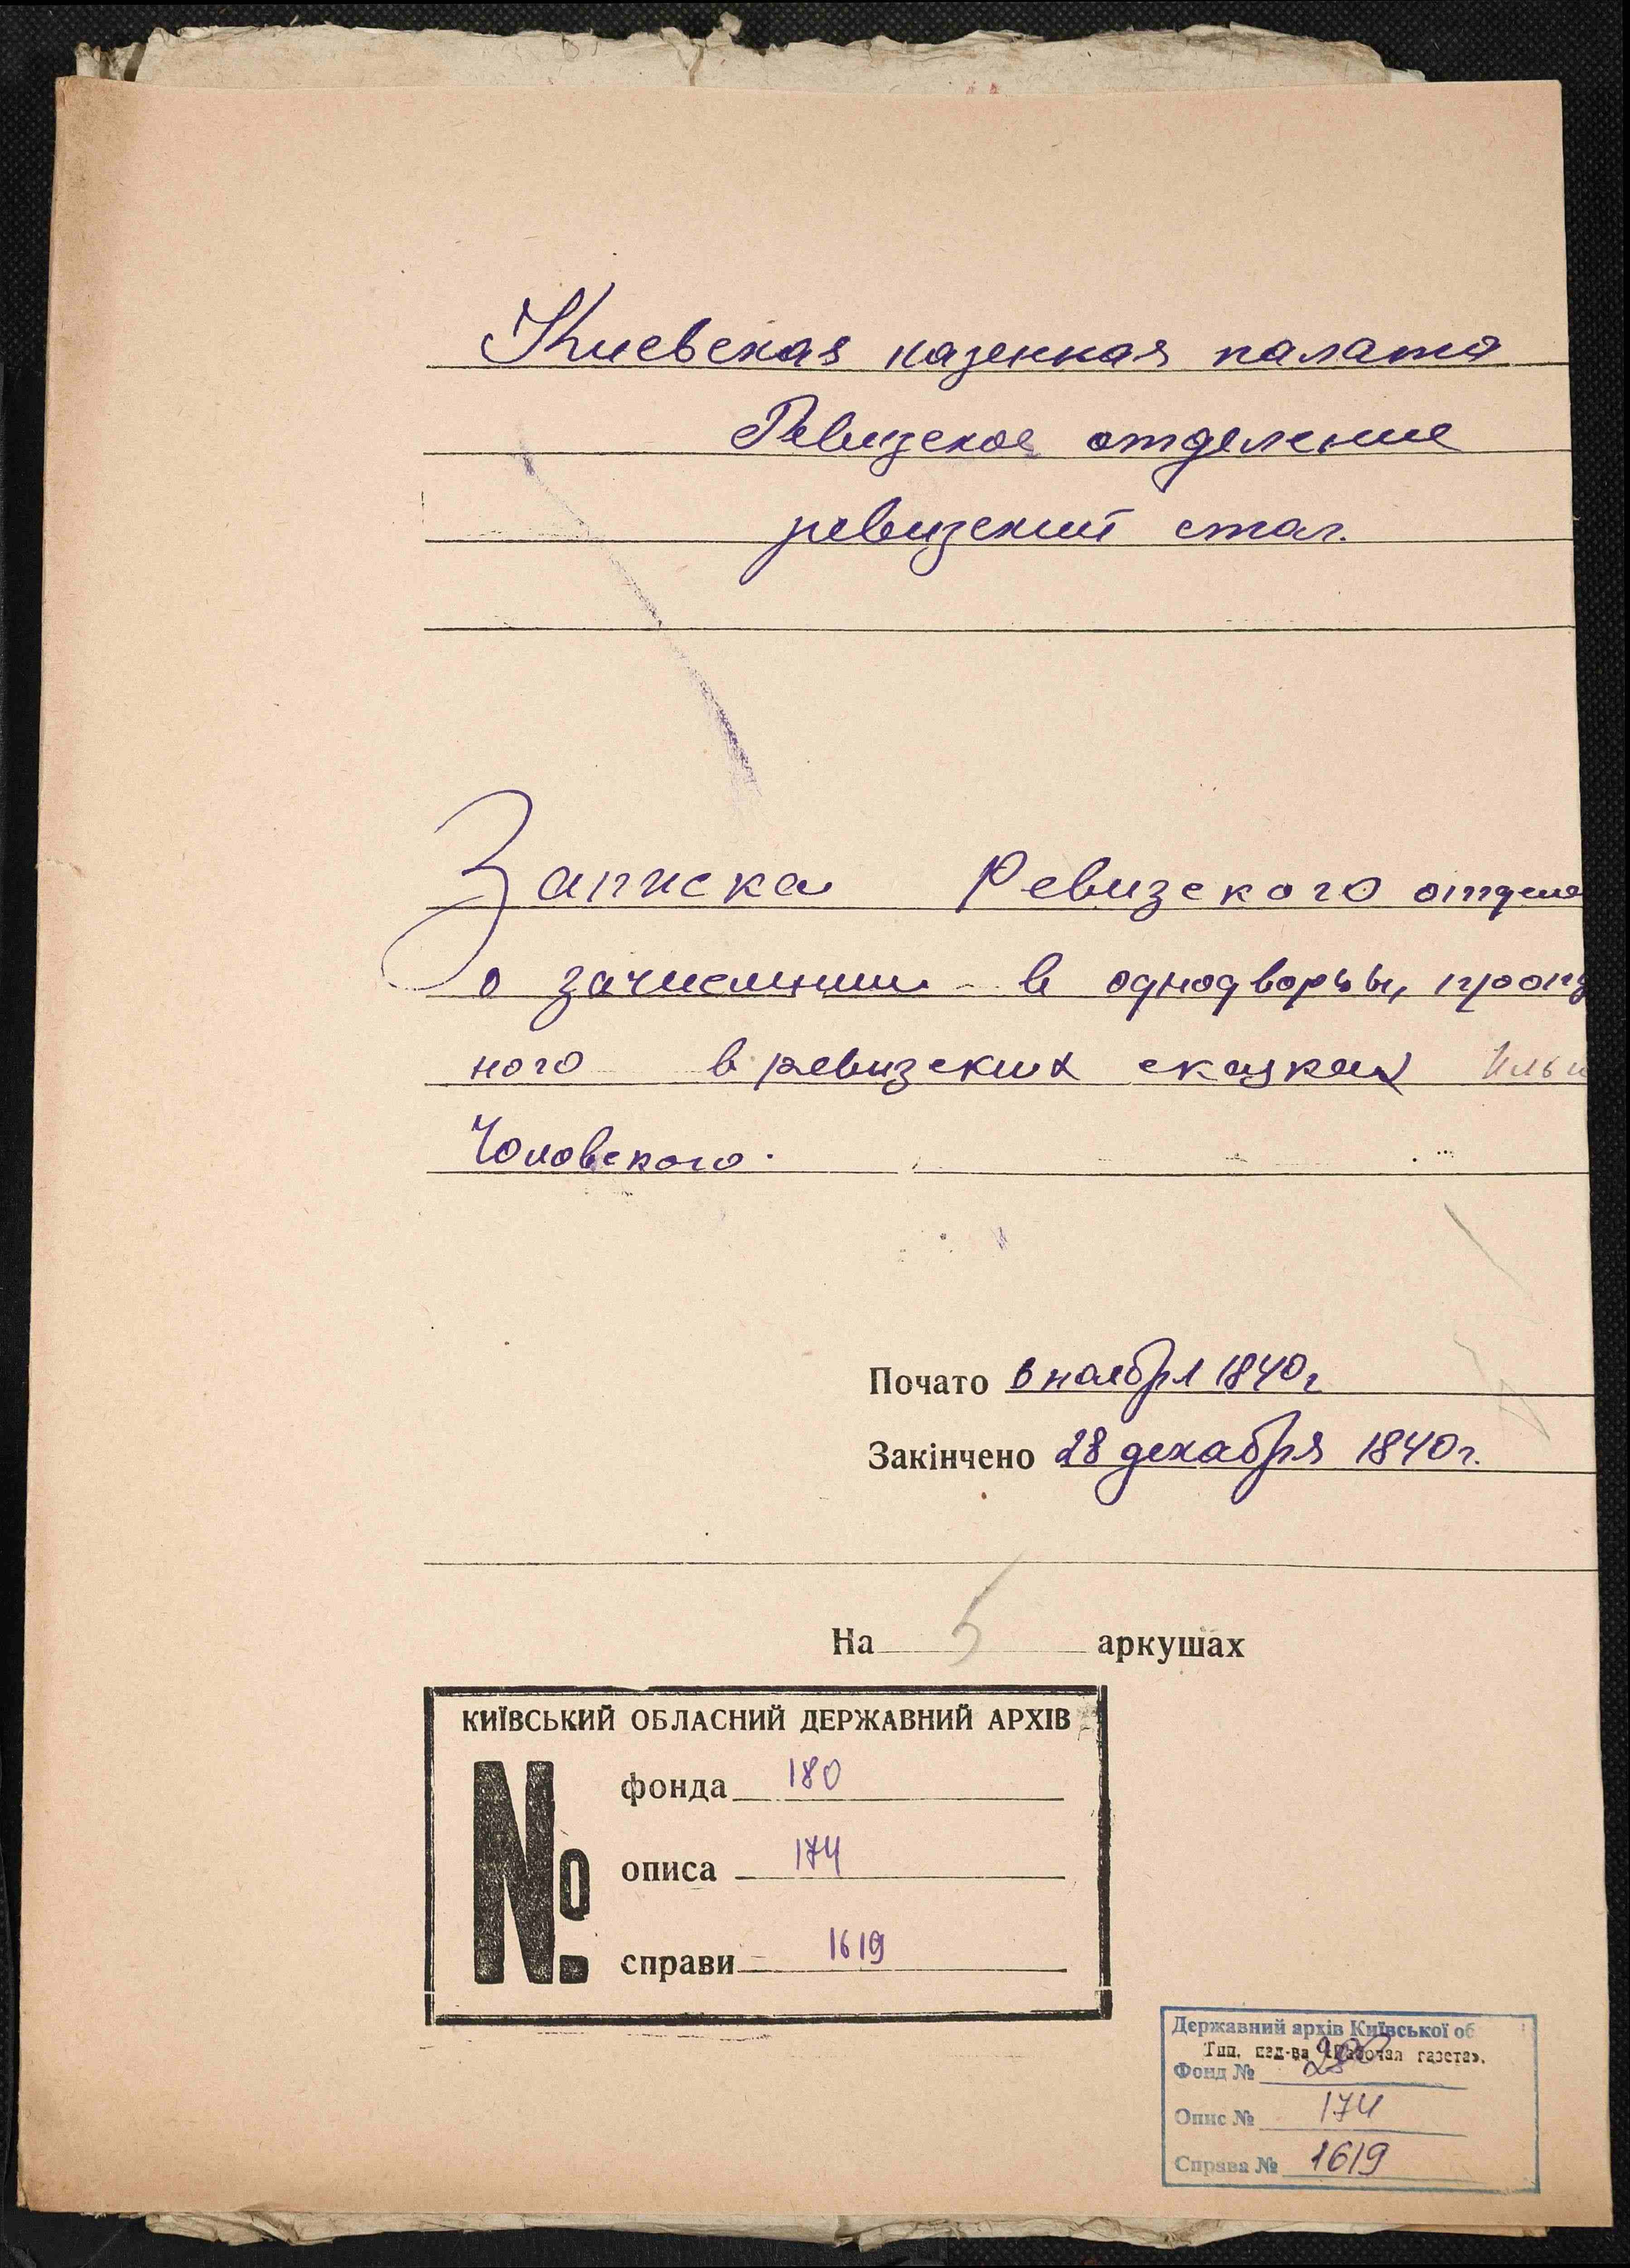 Киевская казенная палата
Ревизское отделение
ревизский стол.
Записка Ревизского отделе
о зачислении в однодворцы, пропу
ного в ревизских сказках Ильи
Чоловского.
Почато 6 ноября 1840 г
Закінчено 28 декабря 1840 г.
На 5 аркушах
КИЇВСЬКИЙ ОБЛАСНИЙ ДЕРЖАВНИЙ АРХІВ
№
фонда 180
описа 174
справи 1619
Державний архів Київської об
Тип. изд-ва «Рабочая газета».
Фонд № 280
Опис № 174
Справа № 1619